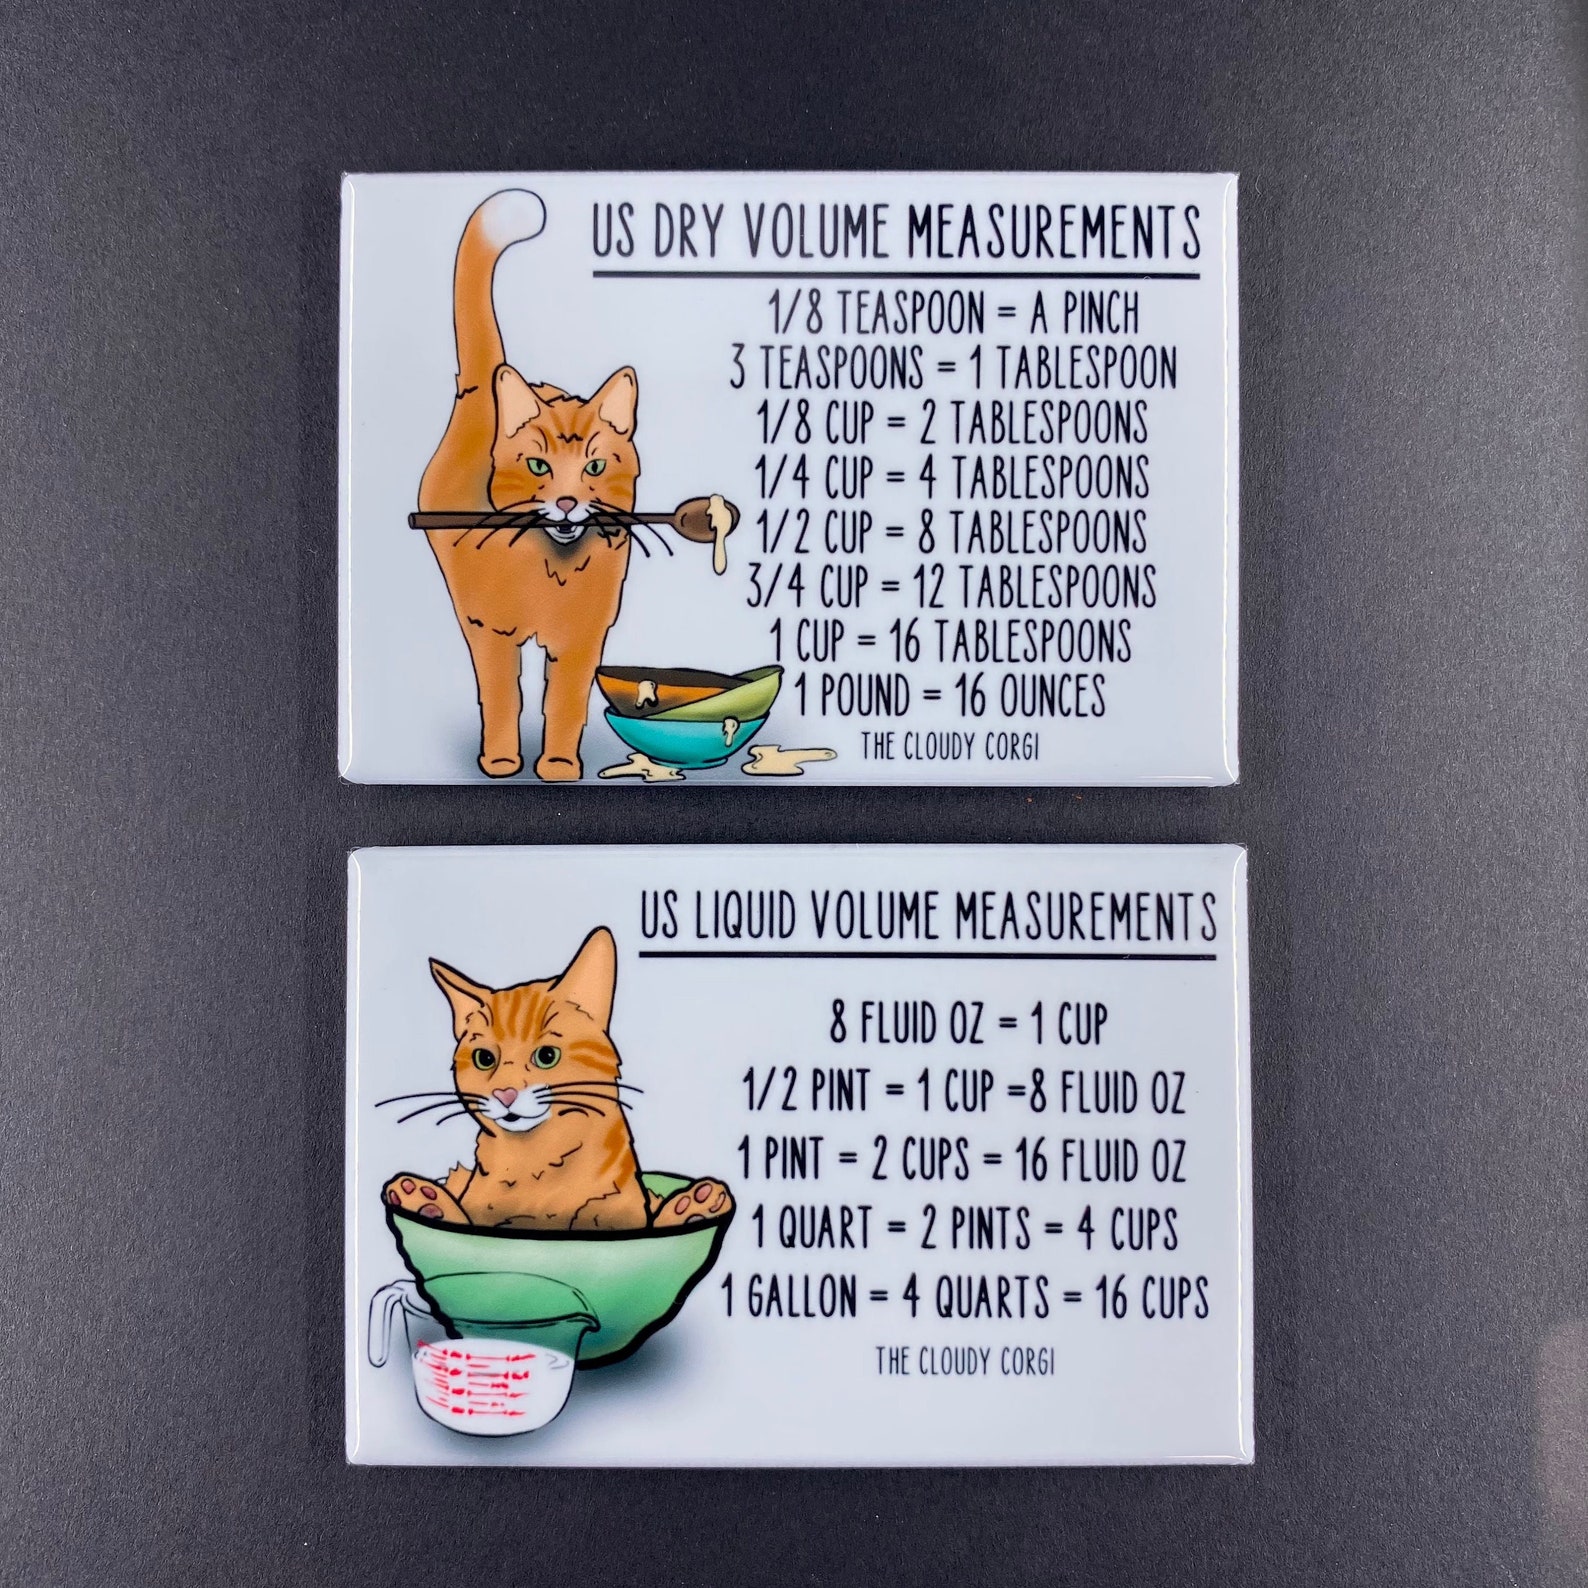 US DRY VOLUME MEASUREMENTS
1/8 TEASPOON = A PINCH
3 TEASPOONS = 1 TABLESPOON
1/8 CUP = 2 TABLESPOONS
1/4 CUP = 4 TABLESPOONS
1/2 CUP = 8 TABLESPOONS
3/4 CUP = 12 TABLESPOONS
1 CUP = 16 TABLESPOONS
1 POUND = 16 OUNCES
THE CLOUDY CORGI
US LIQUID VOLUME MEASUREMENTS
8 FLUID OZ = 1 CUP
1/2 PINT = 1 CUP =8 FLUID OZ
1 PINT = 2 CUPS = 16 FLUID OZ
1 QUART = 2 PINTS = 4 CUPS
1 GALLON = 4 QUARTS = 16 CUPS
THE CLOUDY CORGI